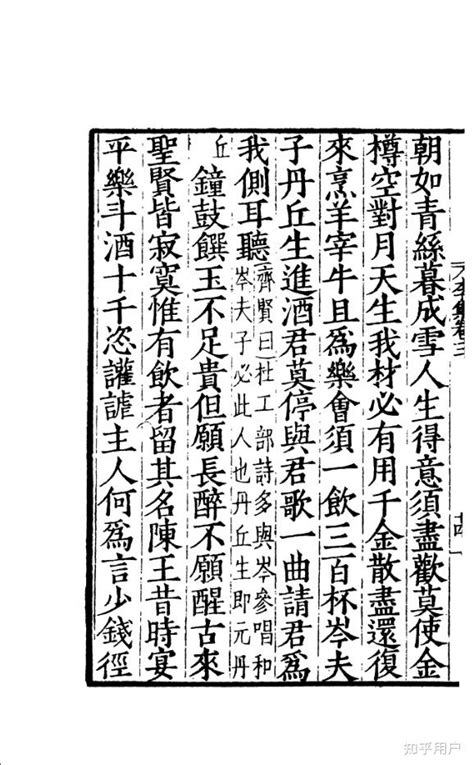 朝如青絲暮成雪人生得意須盡歡莫使金
樽空對月天生我材必有用千金散盡還復
來烹羊宰牛且爲樂會須一飲三百杯岑夫
子丹丘生進酒君莫停與君歌一曲請君爲
我側耳聽
齊賢曰杜工部詩多與岑參唱和
岑夫子必此人也丹丘生即元丹
丘
鐘鼓饌玉不足貴但願長醉不願醒古來
聖賢皆寂寞惟有飲者留其名陳王昔時宴
平樂斗酒十千恣讙謔主人何爲言少錢徑
知乎用户